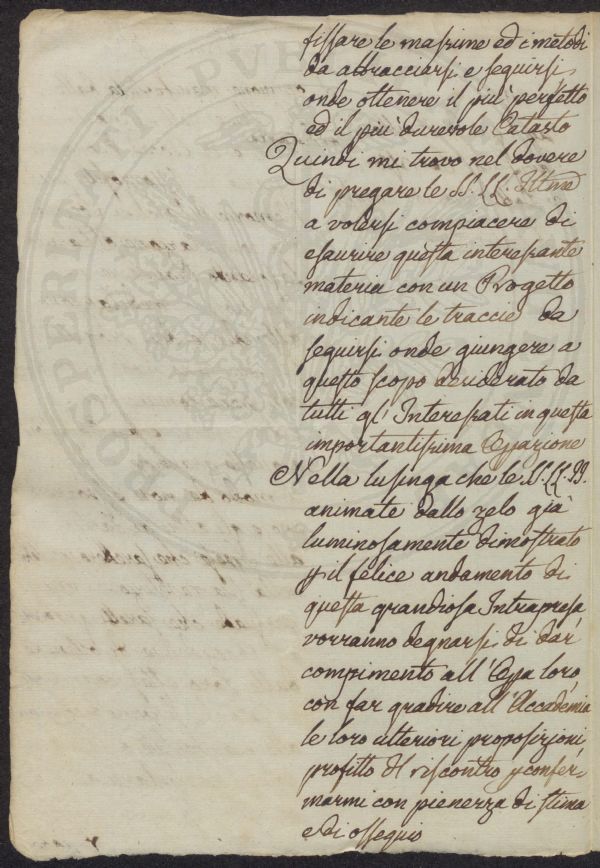 fissare le massime ed i metodi
da abbracciarsi e seguirsi,
onde ottenere il più perfetto
ed il più durevole Catasto
Quindi mi trovo nel dovere
di pregare le SS. LL. Illme
a volersi compiacere di
esaurire questa interessante
materia con un Progetto
indicante le traccie da
seguirsi onde giungere a
questo scopo desiderato da
tutti gl' Interessati in questa
importantissima Opązione
Nella lusinga che le SS. LL. 
animate dallo zelo già
luminosamente dimostrato
p il felice andamento di
questa grandiosa Intrapresa
vorranno degnarsi di dar
compimento all' Opa loro,
con far gradire all' Accademia
le loro ulteriori proposizioni,
profitto del riscontro p confer-
marmi con pienezza di stima
e di ossequio
PROSPERITATI PVB